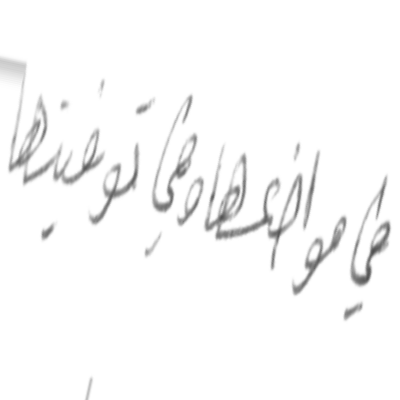 في مواضعها وفي توظيفها